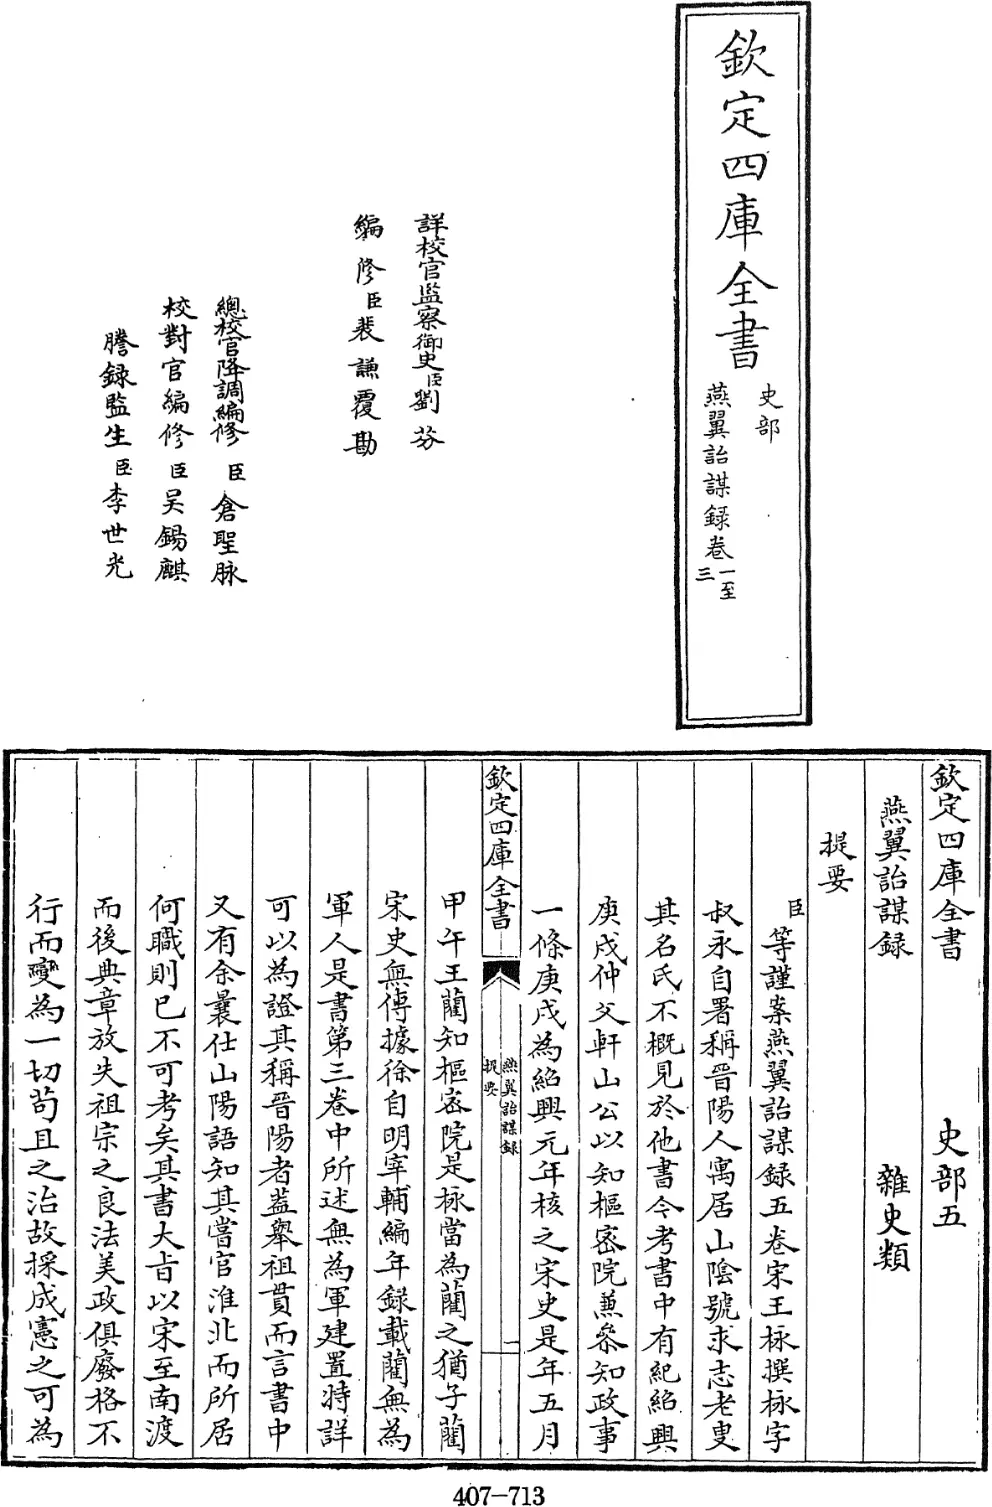 欽定四庫全書
史部
燕翼詒謀録卷一至三
詳校官監察御史臣劉芬
編修臣裴謙覆勘
總校官降調編修臣倉聖脉
校對官編修臣吴錫麒
謄録監生臣李世光
欽定四庫全書 史部五
燕翼詒謀録 雜史類
提要
臣等謹案燕翼詒謀録五卷宋王栐撰栐字
叔永自署稱晋陽人寓居山陰號求志老叟
其名氏不概見於他書今考書中有紀紹興
庚戌仲父軒山公以知樞宻院兼叅知政事
一條庚戌為紹興元年核之宋史是年五月
欽定四庫全書
燕翼詒謀録
提要
一
甲午王藺知樞宻院是栐當為藺之猶子藺
宋史無傳據徐自明宰輔編年録載藺無為
軍人是書第三卷中所述無為軍建置特詳
可以為證其稱晋陽者葢舉祖貫而言書中
又有余曩仕山陽語知其嘗官淮北而所居
何職則已不可考矣其書大㫖以宋至南渡
而後典章放失祖宗之良法美政俱廢格不
行而變為一切苟且之治故採成憲之可為
407-713